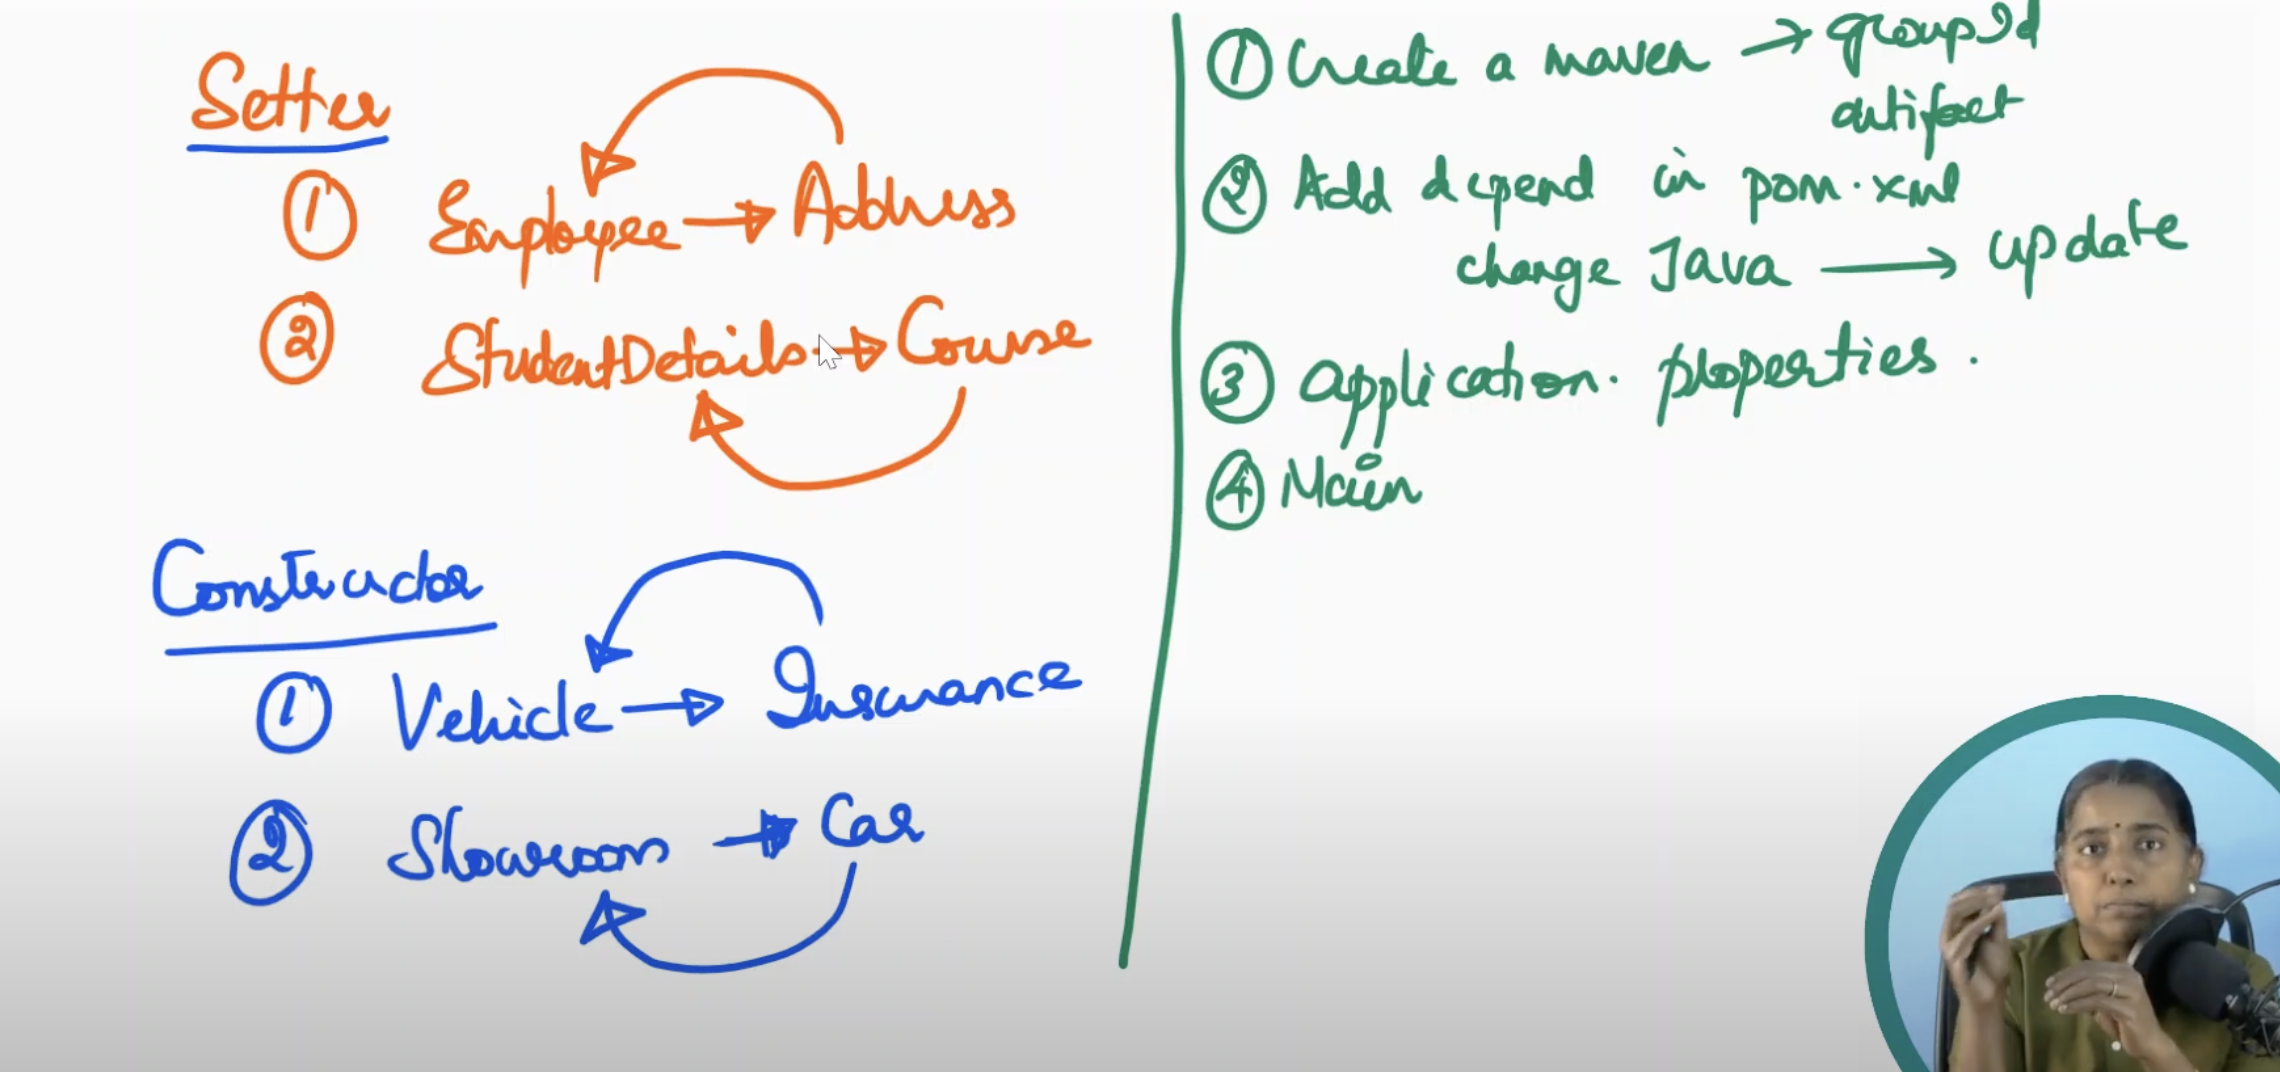 Setter
① Employee → Address
② StudentDetails → Course
Constructor
① Vehicle → Insurance
② Showroom → Car
① Create a maven → groupId
artifact
② Add depend in pom.xml
change Java → update
③ Application. properties.
④ Main